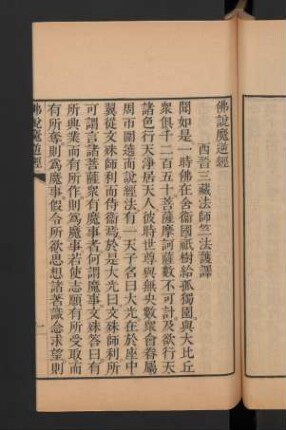 佛說魔逆經
西晉三藏法師竺法護譯
聞如是一時佛在舍衞國祇樹給孤獨園與大比丘
衆俱千二百五十菩薩摩訶薩數不可計及欲行天
諸色行天淨居天人彼時世尊與無央數衆會眷屬
周帀圍遶而說經法有一天子名曰大光在於座中
翼從文殊師利而侍衞焉於是大光曰文殊師利所
可謂言諸菩薩衆有魔事者何謂魔事文殊答曰有
所興業而有所作則爲魔事若使志願有所受取而
有所奪則爲魔事假令所欲思想諸著識念求望則
佛說魔逆經
一